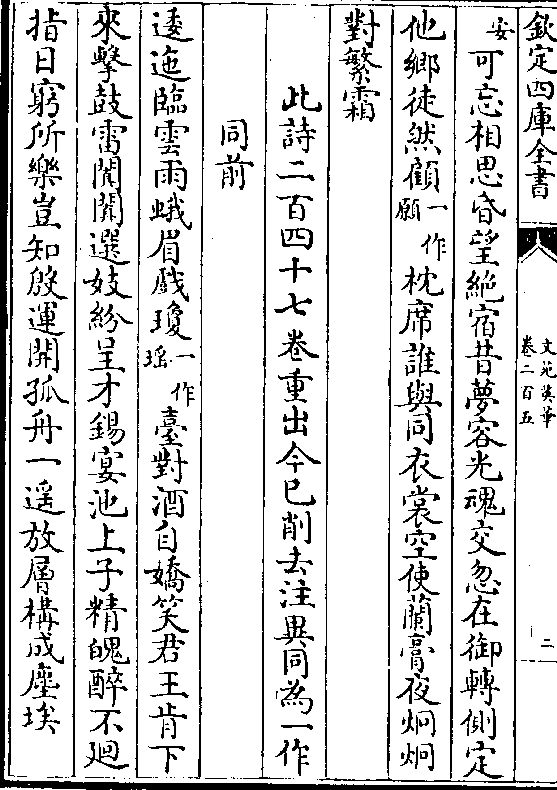 欽定四庫全書
文苑英華
卷二百五
二
安可忘相思昏望絶宿昔夢容光魂交忽在御轉側定
他鄉徒然顧一作願枕席誰與同衣裳空使蘭膏夜炯炯
對繁霜
此詩二百四十七卷重出今已削去注異同為一作
同前
逶迤臨雲雨蛾眉戲瓊一作瑶臺對酒自嬌笑君王肯下
來擊鼓雷闐闐選妓紛呈才錫宴池上子精魄醉不廻
指日窮所樂豈知殷運開孤舟一遥放層構成塵埃